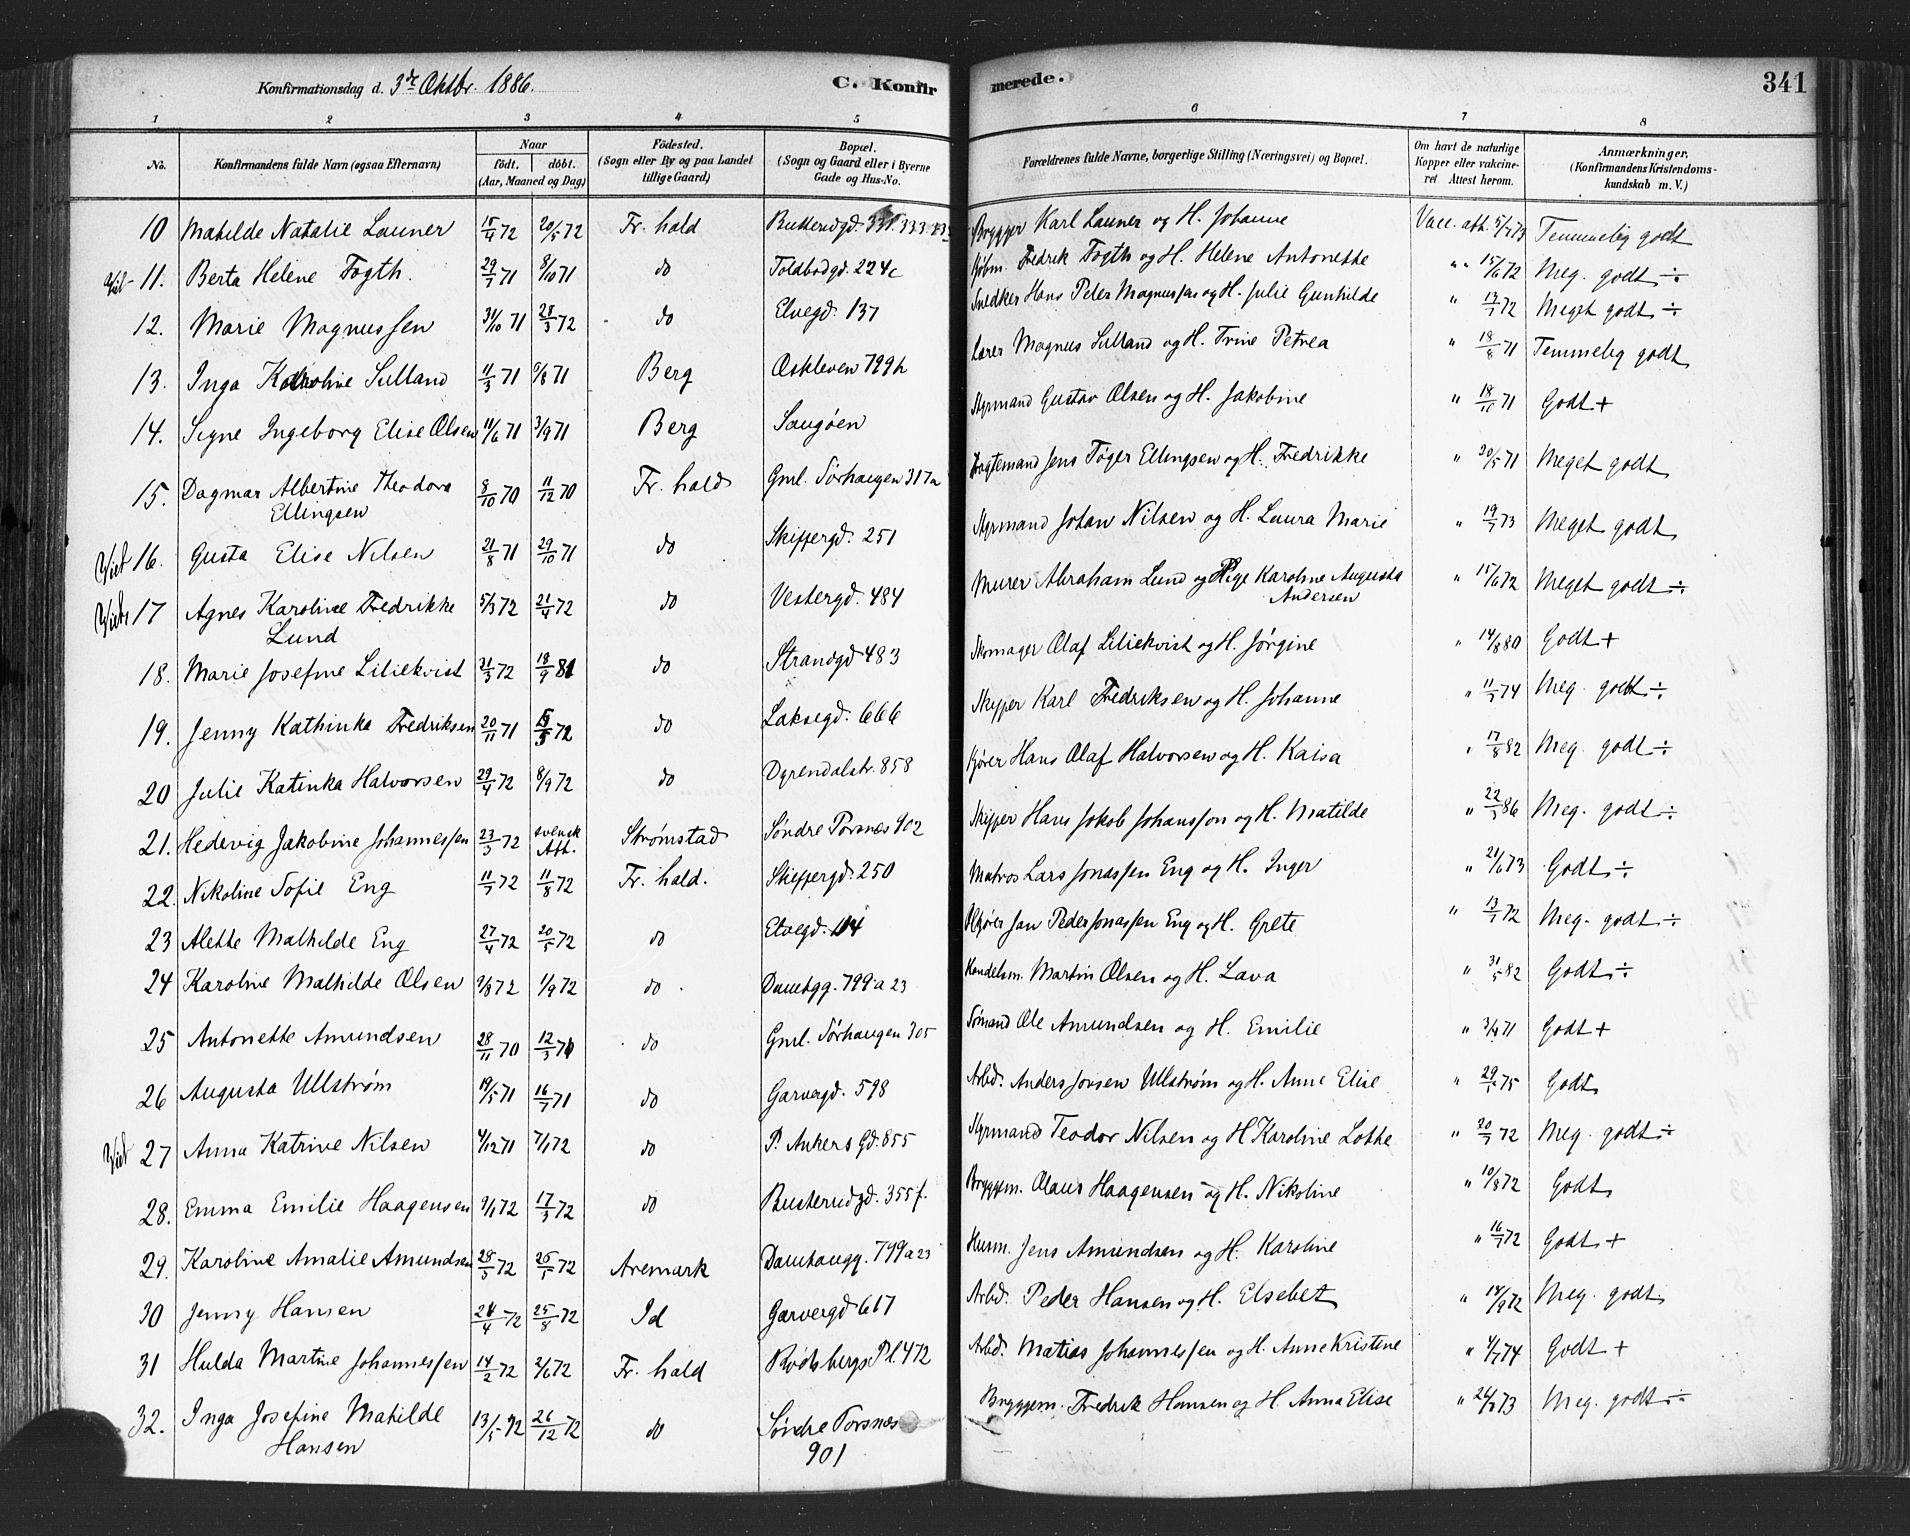 Konfirmationsdag d. 3de Oktbr. 1886. C. Konfirmerede. 341
1 2 3 4 5 6 7 8
No. Konfirmandens fulde Navn (ogsaa Efternavn) Naar födt. döbt. (Aar, Maaned og Dag) Födested. (Sogn eller By og paa Landet tillige Gaard) Bopæl. (Sogn og Gaard eller i Byerne Gade og Hus-No. Forældrenes fulde Navne, borgerlige Stilling (Næringsvei) og Bopæl. Om havt de naturlige Kopper eller vakcineret. Attest herom. Anmærkninger. (Konfirmandens Kristendomskundskab m. V.)
10 Matilde Natalie Launer 15/4 72 20/5 72 Fr. hald Busterudgd. 331. 333 Brygger Karl Launer og H. Johanne Vacc. att. Temmelig godt
11. Berta Helene Fogth. 29/7 71 8/10 71 do Toldbodgd. 224c Kjøbm. Fredrik Fogth og H. Helene Antonette " " 15/6 72 Meg. godt ÷
12. Marie Magnussen 31/10 71 28/3 72 do Elvegd. 137 Snedker Hans Peter Magnussen og H. Julie Gunhilde " 72 Meget godt ÷
13. Inga Karoline Sulland 11/3 71 71 Berg Oskleven 799h Lærer Magnus Sulland og H. Trine Petrea " 18/8 71 Temmelig godt
14. Signe Ingeborg Elise Olsen 11/6 71 3/9 71 Berg Saugøen Styrmand Gustav Olsen og H. Jakobine " 18/10 71 Godt +
15. Dagmar Albertine Theodora Ellingsen 8/10 70 11/12 70 Fr. hald Gml. Sørhaugen 317a Fragtemand Jens Tøger Ellingsen og H. Fredrikke " 20/5 71 Meget godt
16. Gusta Elise Nilsen 21/8 71 29/10 71 do Skippergd. 251 Styrmand Johan Nilsen og H. Laura Marie " 73 Meget godt
17 Agnes Karoline Fredrikke Lund 5/3 72 21/4 72 do Vestergd. 484 Murer Abraham Lund og Pige Karoline Augusta Andersen " 15/6 72 Meget godt ÷
18. Marie Josefine Liliekvist 21/3 72 18/9 81 do Strandgd 483 Skomager Olaf Liliekvist og H. Jørgine " 14/8 80 Godt +
19. Jenny Kathinka Fredriksen 20/11 71 72 do Laksegd. 666 Skipper Karl Fredriksen og H. Johanne " 74 Meg. godt ÷
20 Julie Katinka Halvorsen 29/4 72 8/9 72 do Dyrendalstr. 858 Kjører Hans Olaf Halvorsen og H. Kaisa " 17/8 82 Meg. godt ÷
21. Hedevig Jakobine Johannessen 23/3 72 svensk Att. Strømstad Søndre Torsnæs 902 Skipper Hans Jakob Johansson og H. Matilde " 22/3 86 Meg. godt ÷
22. Nikoline Sofie Eng 11/7 72 11/8 72 Fr. hald. Skippergd. 250 Matros Lars Jonassen Eng og H. Inger " 21/6 73 Godt ÷
23 Alette Mathilde Eng 27/4 72 20/5 72 do Elvegd. Jan Peder Jonassen Eng og H. Grete " 72 Meg. godt ÷
24 Karoline Mathilde Olsen 72 1/9 72 do Damhgg. 799a 23 Handelsm. Martin Olsen og H. Lava " 31/5 82 Godt ÷
25 Antonette Amundsen 28/11 70 12/3 71 do Gml. Sørhaugen 305 Sømand Ole Amundsen og H. Emilie " 71 Godt +
26 Augusta Ullstrøm 19/5 71 16/7 71 do Garvergd. 598 Arbd. Anders Jonsen Ullstrøm og H. Anne Elise " 75 Godt
27 Anna Katrine Nilsen 4/12 71 7/1 72 do P. Ankers Gd. 855 Styrmand Teodor Nilsen og H Karoline Lotte " 20/7 72 Meg. godt ÷
28. Emma Emilie Haagensen 9/1 72 17/3 72 do Busterudgd. 355f. Bryggem. Olaus Haagensen og H. Nikoline " 10/8 72 Godt
29. Karoline Amalie Amundsen 28/3 72 26/5 72 Aremark Damhaugg. 799a 23 Husm. Jens Amundsen og H. Karoline " 16/7 72 Godt +
30 Jenny Hansen 24/4 72 25/8 72 Id Garvergd 617 Arbd. Peder Hansen og H. Elsebet " 14/9 72 Meg. godt
31 Hulda Martine Johannessen 14/2 72 2/6 72 Fr. hald Rødsbergs Pl. 472 Arbd. Matias Johannessen og H. Anne Kristine " 4/7 74 Godt +
32. Inga Josefine Matilde Hansen 13/5 72 26/12 72 do Søndre Torsnæs 901 Bryggem. Fredrik Hansen og H Anna Elise " 73 Meg. godt ÷